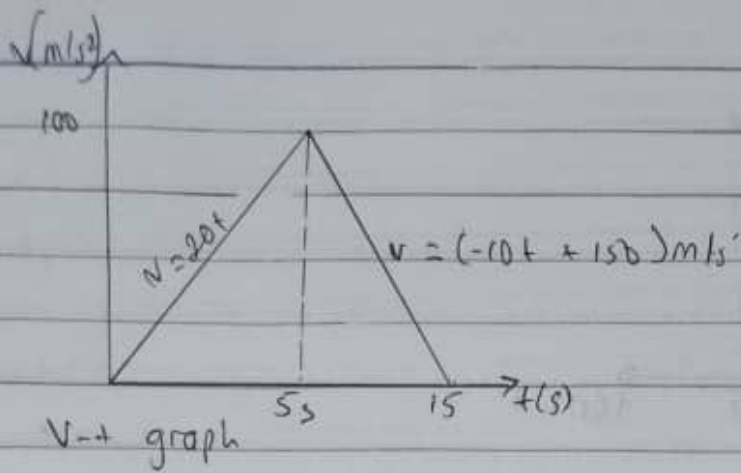 V(m/s²)
100
v=20t
v = (-10t + 150)m/s
5s
15
t(s)
V-t graph